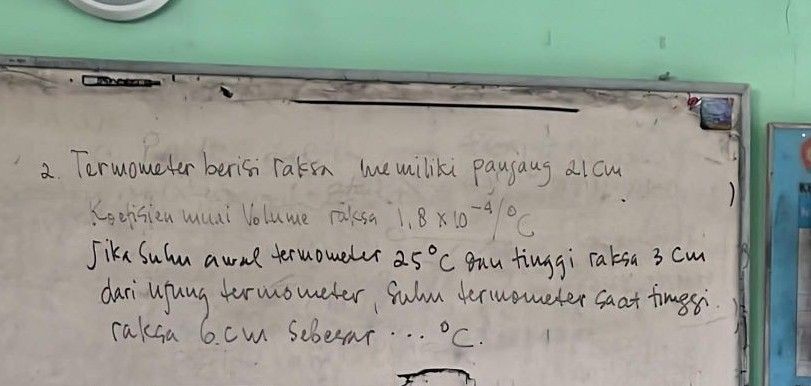 2. Termometer berisi raksa memiliki panjang 21 cm
Koefisien muai Volume raksa 1,8 x 10⁻⁴/°C
Jika Suhu awal termometer 25°C dan tinggi raksa 3 cm
dari ujung termometer, Suhu termometer saat tinggi
raksa 6 cm Sebesar ... °C.